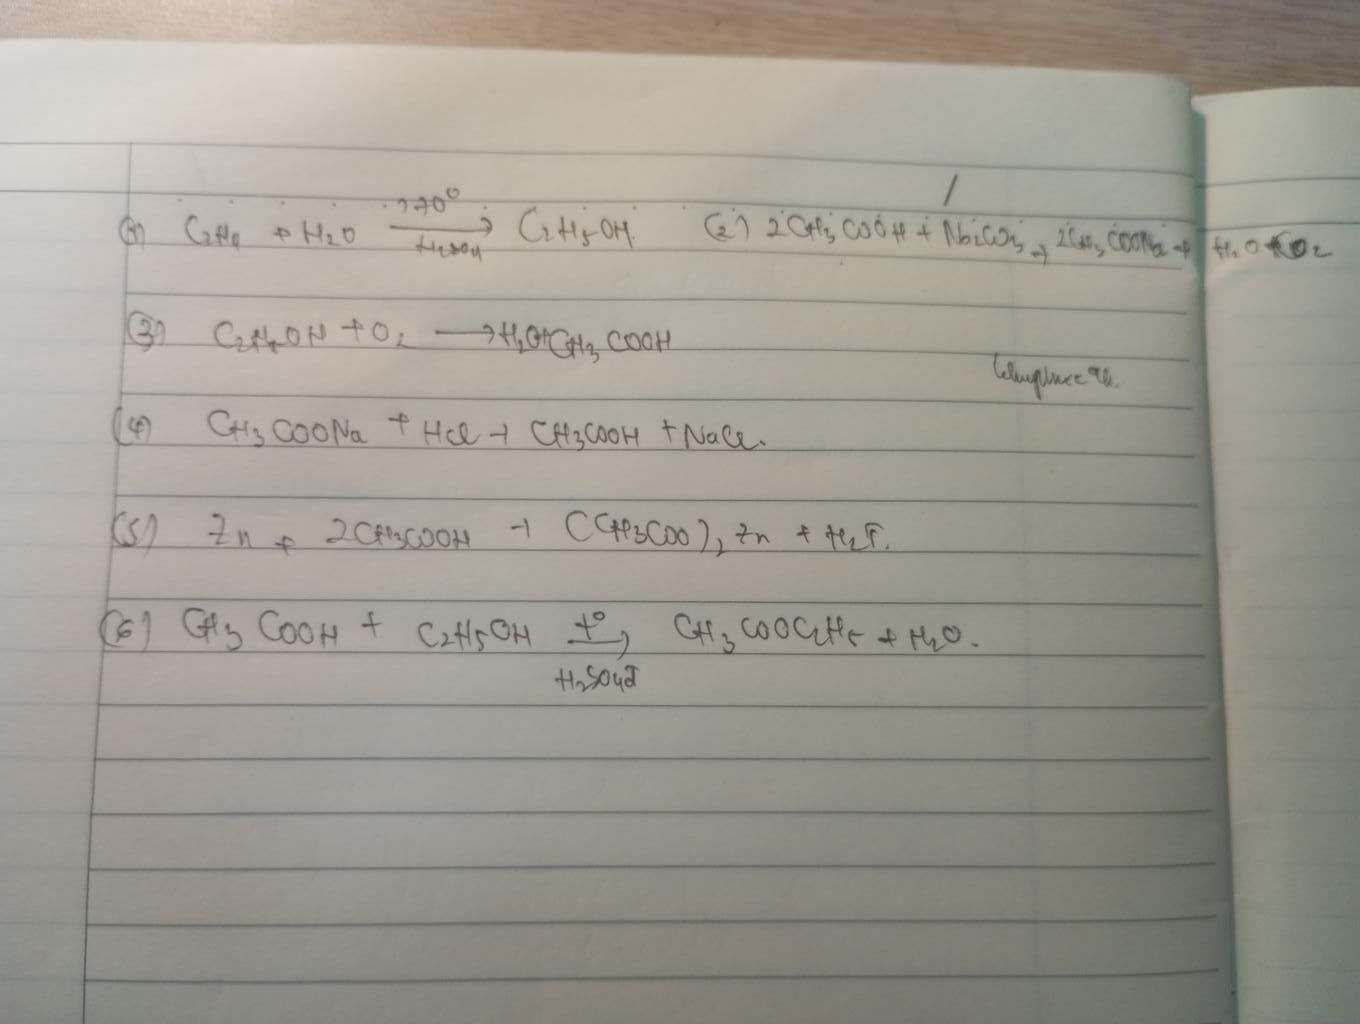 (1) C2H4 + H2O →170° H2SO4 C2H5OH. (2) 2CH3COOH + Na2CO3 → 2CH3COONa + H2O + CO2
(3) C2H5OH + O2 → H2O + CH3COOH
(4) CH3COONa + HCl → CH3COOH + NaCl.
(5) Zn + 2CH3COOH → (CH3COO)2Zn + H2↑.
(6) CH3COOH + C2H5OH →t° CH3COOC2H5 + H2O.
H2SO4đ